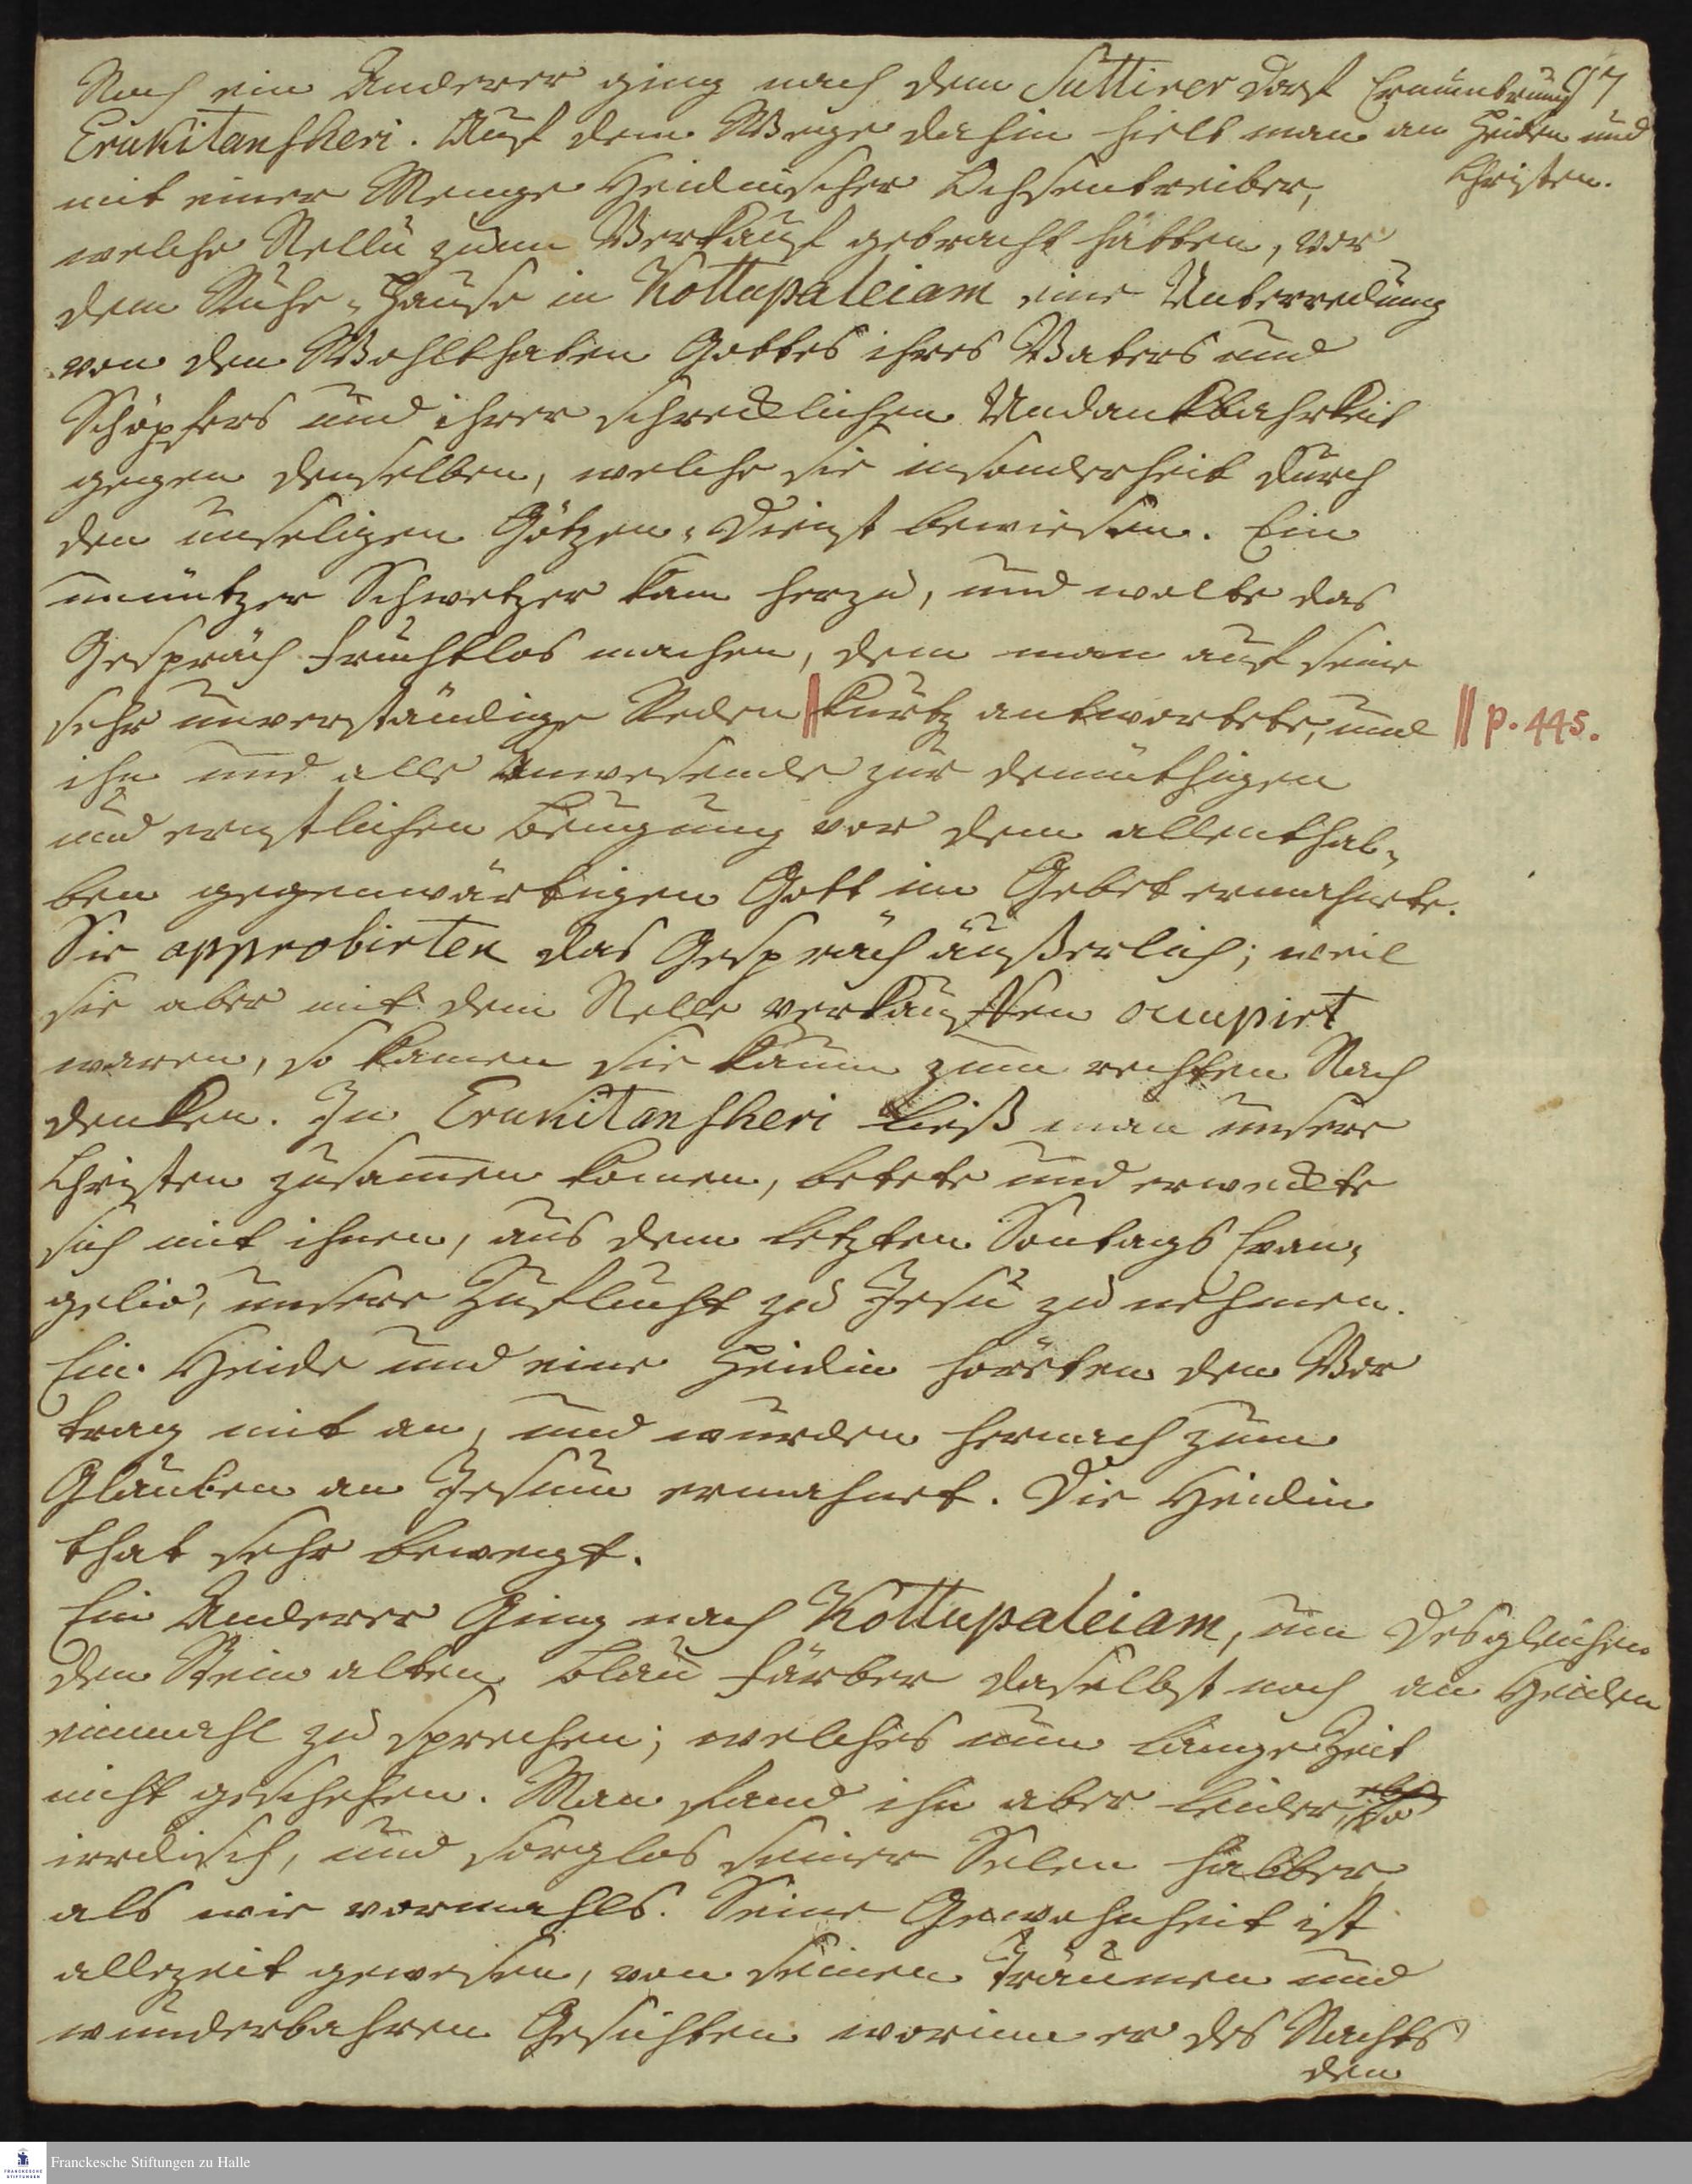 97
Noch ein Anderer ging nach dem Suttirer Dorf
Erukitanscheri. Auf dem Wege dahin hielt man
mit einer Menge Heidnischer Ochsentreiber,
welche Nellu zum Verkauf gebracht hatten, vor
dem Ruhe-Hause in Kottupaleiam eine Unterredung
von den Wohlthaten Gottes ihres Vaters und
Schöpfers und ihrer schrecklichen Undankbahrkeit
gegen denselben, welche sie insonderheit durch
den unseligen Götzen-Dienst bewiesen. Ein
unnützer Schwetzer kam herzu, und wolte das
Gespräch fruchtlos machen, dem man auf seine
sehr unverständige Reden || kurtz antwortete, und
ihn und alle Anwesende zur demüthigen
und ernstlichen Beugung vor dem allenthal-
ben gegenwärtigen Gott im Gebet ermahnte.
Sie approbirten das Gespräch äußerlich; weil
sie aber mit dem Nelle verkauffen occupirt
waren, so kamen sie kaum zum rechten Nach
denken. In Erukitanscheri ließ man unsere
Christen zusamen komen, betete und erweckte
sich mit ihnen, aus dem letzten Sontags Evan-
gelio, unsere Zuflucht zu Jesu zu nehmen.
Ein Heide und eine Heidin hörten den Vor
trag mit an, und wurden hernach zum
Glauben an Jesum ermahnet. Die Heidin
that sehr bewegt.
Ein Anderer Ging nach Kottupaleiam, um
den Stein alten Blau färber daselbst noch
einmahl zu sprechen; welches nun lange Zeit
nicht geschehen. Man fand ihn aber leider, so
irrdisch, und sorglos seiner Selen halber
als wie vormahls. Seine Gewohnheit ist
allezeit gewesen, von seinen Träumen und
wunderbahren Gesichten worinn er des Nachts
den
Ermunterung
an Heiden und
Christen.
|| p. 445.
Desgleichen
an Heiden
Franckesche Stiftungen zu Halle
FRANCKESCHE
STIFTUNGEN